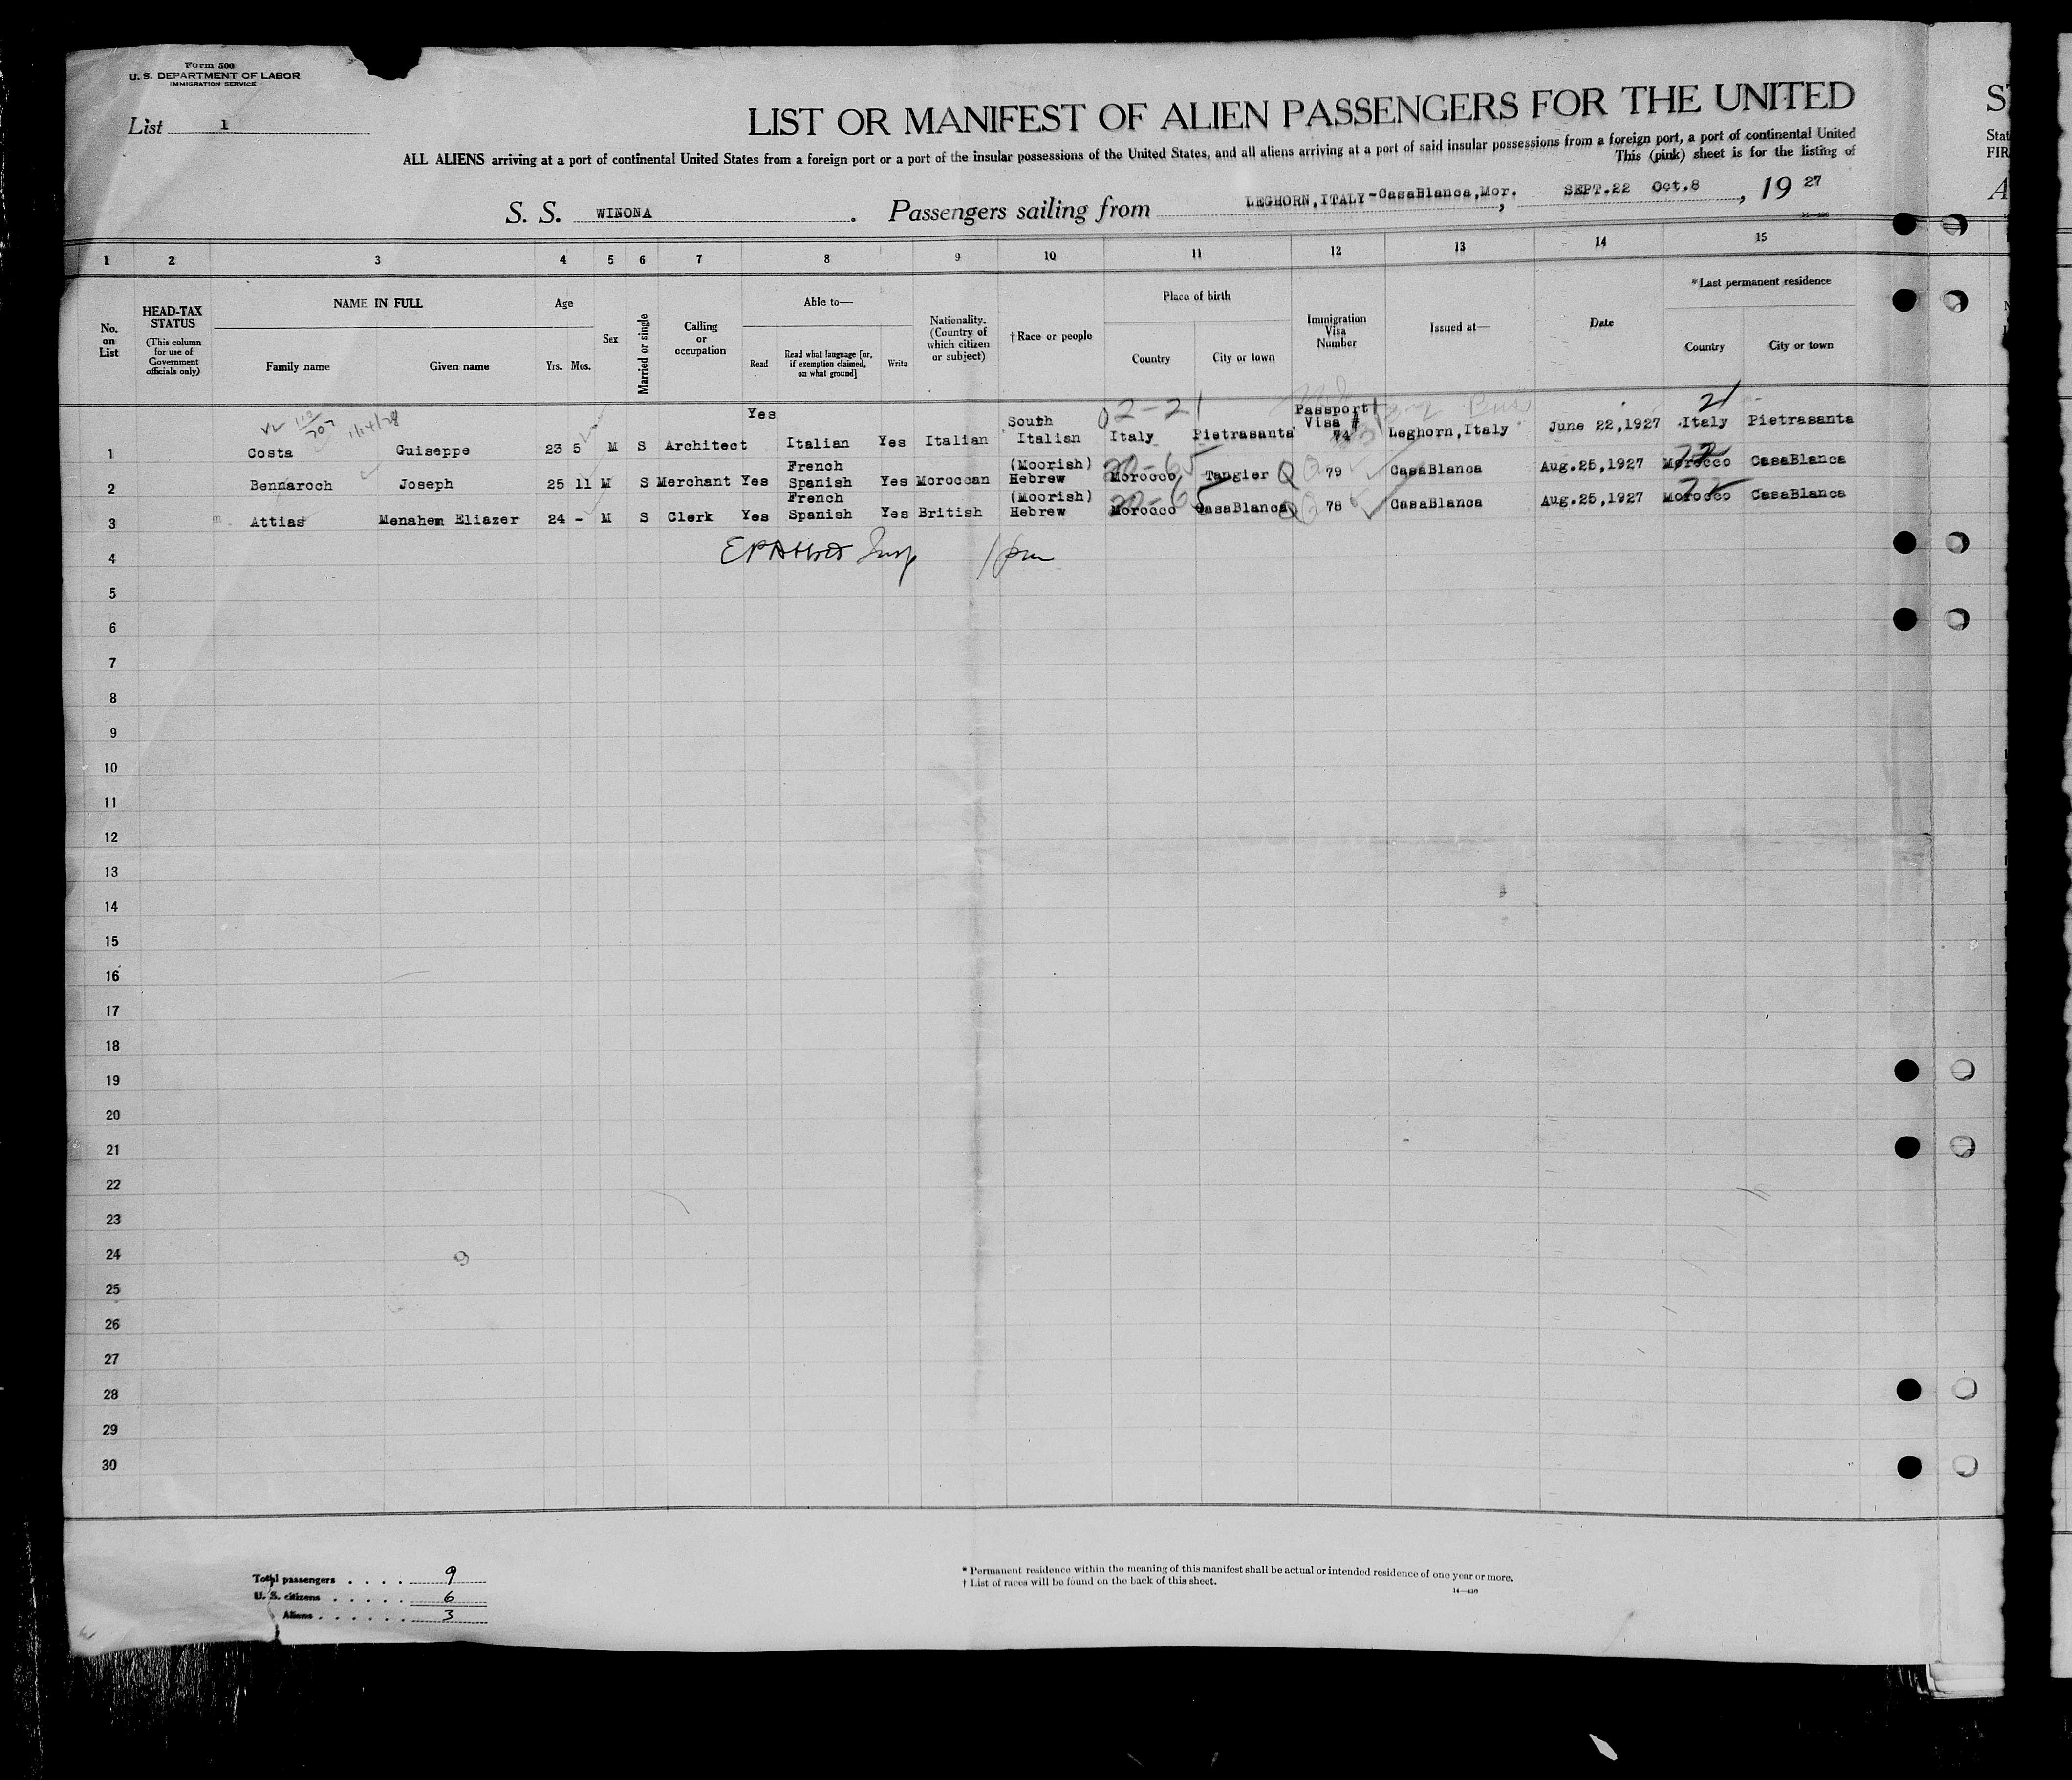 Form 500
U. S. DEPARTMENT OF LABOR
IMMIGRATION SERVICE
List 1
LIST OR MANIFEST OF ALIEN PASSENGERS FOR THE UNITED
ALL ALIENS arriving at a port of continental United States from a foreign port or a port of the insular possessions of the United States, and all aliens arriving at a port of said insular possessions from a foreign port, a port of continental United
This (pink) sheet is for the listing of
Stat
FIR
S. S. WINONA . Passengers sailing from LEGHORN, ITALY-CasaBlanca,Mor. , SEPT.22 Oct.8 , 19 27
1 2 3 4 5 6 7 8 9 10 11 12 13 14 15
No. on List
HEAD-TAX STATUS
(This column for use of Government officials only)
NAME IN FULL
Family name Given name
Age
Yrs. Mos.
Sex
Married or single
Calling or occupation
Able to—
Read
Read what language [or, if exemption claimed, on what ground]
Write
Nationality. (Country of which citizen or subject)
†Race or people
Place of birth
Country City or town
Immigration Visa Number
Issued at—
Date
*Last permanent residence
Country City or town
02-21 21
Yes South Passport Visa #
1 Costa Guiseppe 23 5 M S Architect Italian Yes Italian Italian Italy Pietrasanta 74 Leghorn,Italy June 22,1927 Italy Pietrasanta
French (Moorish) 20-65
2 Bennaroch Joseph 25 11 M S Merchant Yes Spanish Yes Moroccan Hebrew Morocco Tangier Q 79 CasaBlanca Aug.25,1927 Morocco CasaBlanca
French (Moorish) 20-65
3 Attias Menahem Eliazer 24 - M S Clerk Yes Spanish Yes British Hebrew Morocco CasaBlanca Q 78 CasaBlanca Aug.25,1927 Morocco CasaBlanca
4
5
6
7
8
9
10
11
12
13
14
15
16
17
18
19
20
21
22
23
24
25
26
27
28
29
30
Total passengers . . . . 9
U. S. citizens . . . . . 6
Aliens . . . . . . . 3
* Permanent residence within the meaning of this manifest shall be actual or intended residence of one year or more.
† List of races will be found on the back of this sheet.